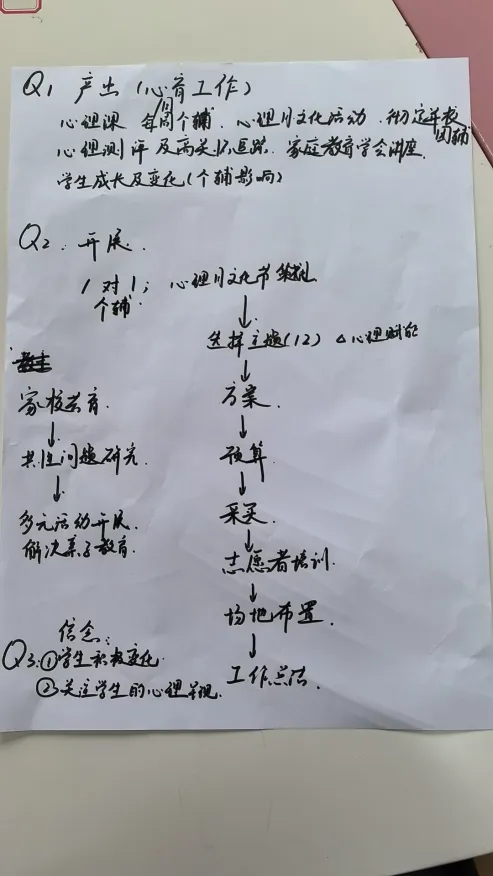 Q1 产出 (心育工作)
心理课 每周个辅. 心理月文化活动. 制定并校团辅
心理测评及两关怀追踪. 家庭教育学会讲座.
学生成长及变化(个辅影响)
Q2: 开展.
1对1; 心理月文化节策划
个辅.
↓
选择主题(12) △心理赋能
家校共育. 方案.
↓ ↓
共性问题研究. 预算.
↓ ↓
多元活动开展. 采买.
解决亲子教育. ↓
志愿者培训.
↓
场地布置.
↓
信念:
Q3: ①学生积极变化. 工作总结.
②关注学生的心理呈现.